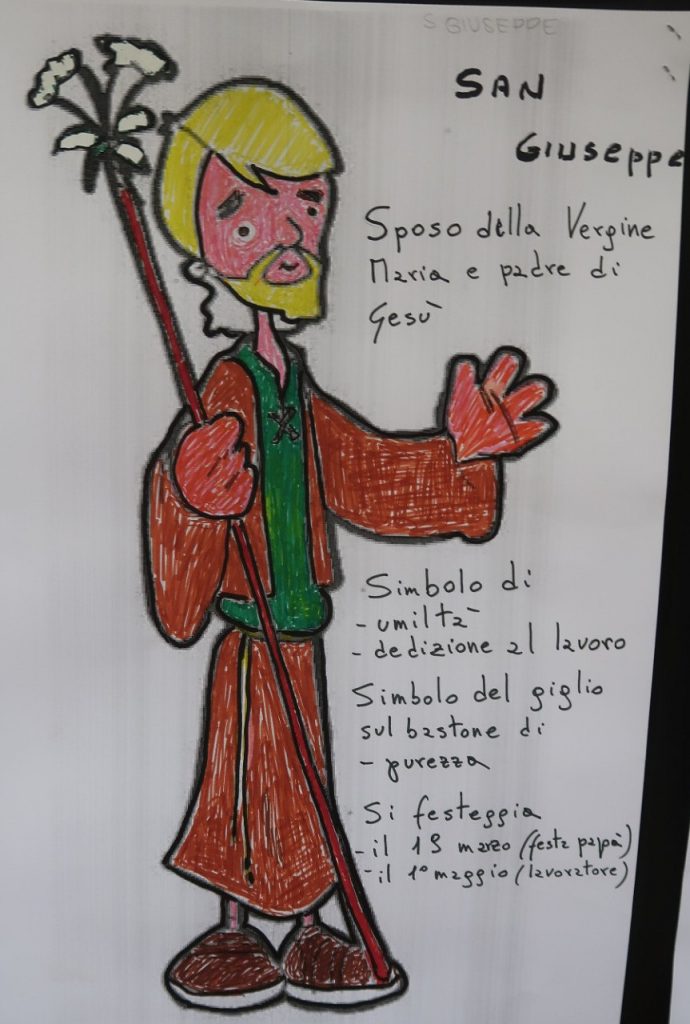 S GIUSEPPE
SAN
GIUSEPPE
Sposo della Vergine
Maria e padre di
Gesù
Simbolo di
- umiltà
- dedizione al lavoro
Simbolo del giglio
sul bastone di
- purezza
Si festeggia
- il 19 marzo (festa papà)
- il 1° maggio (lavoratore)